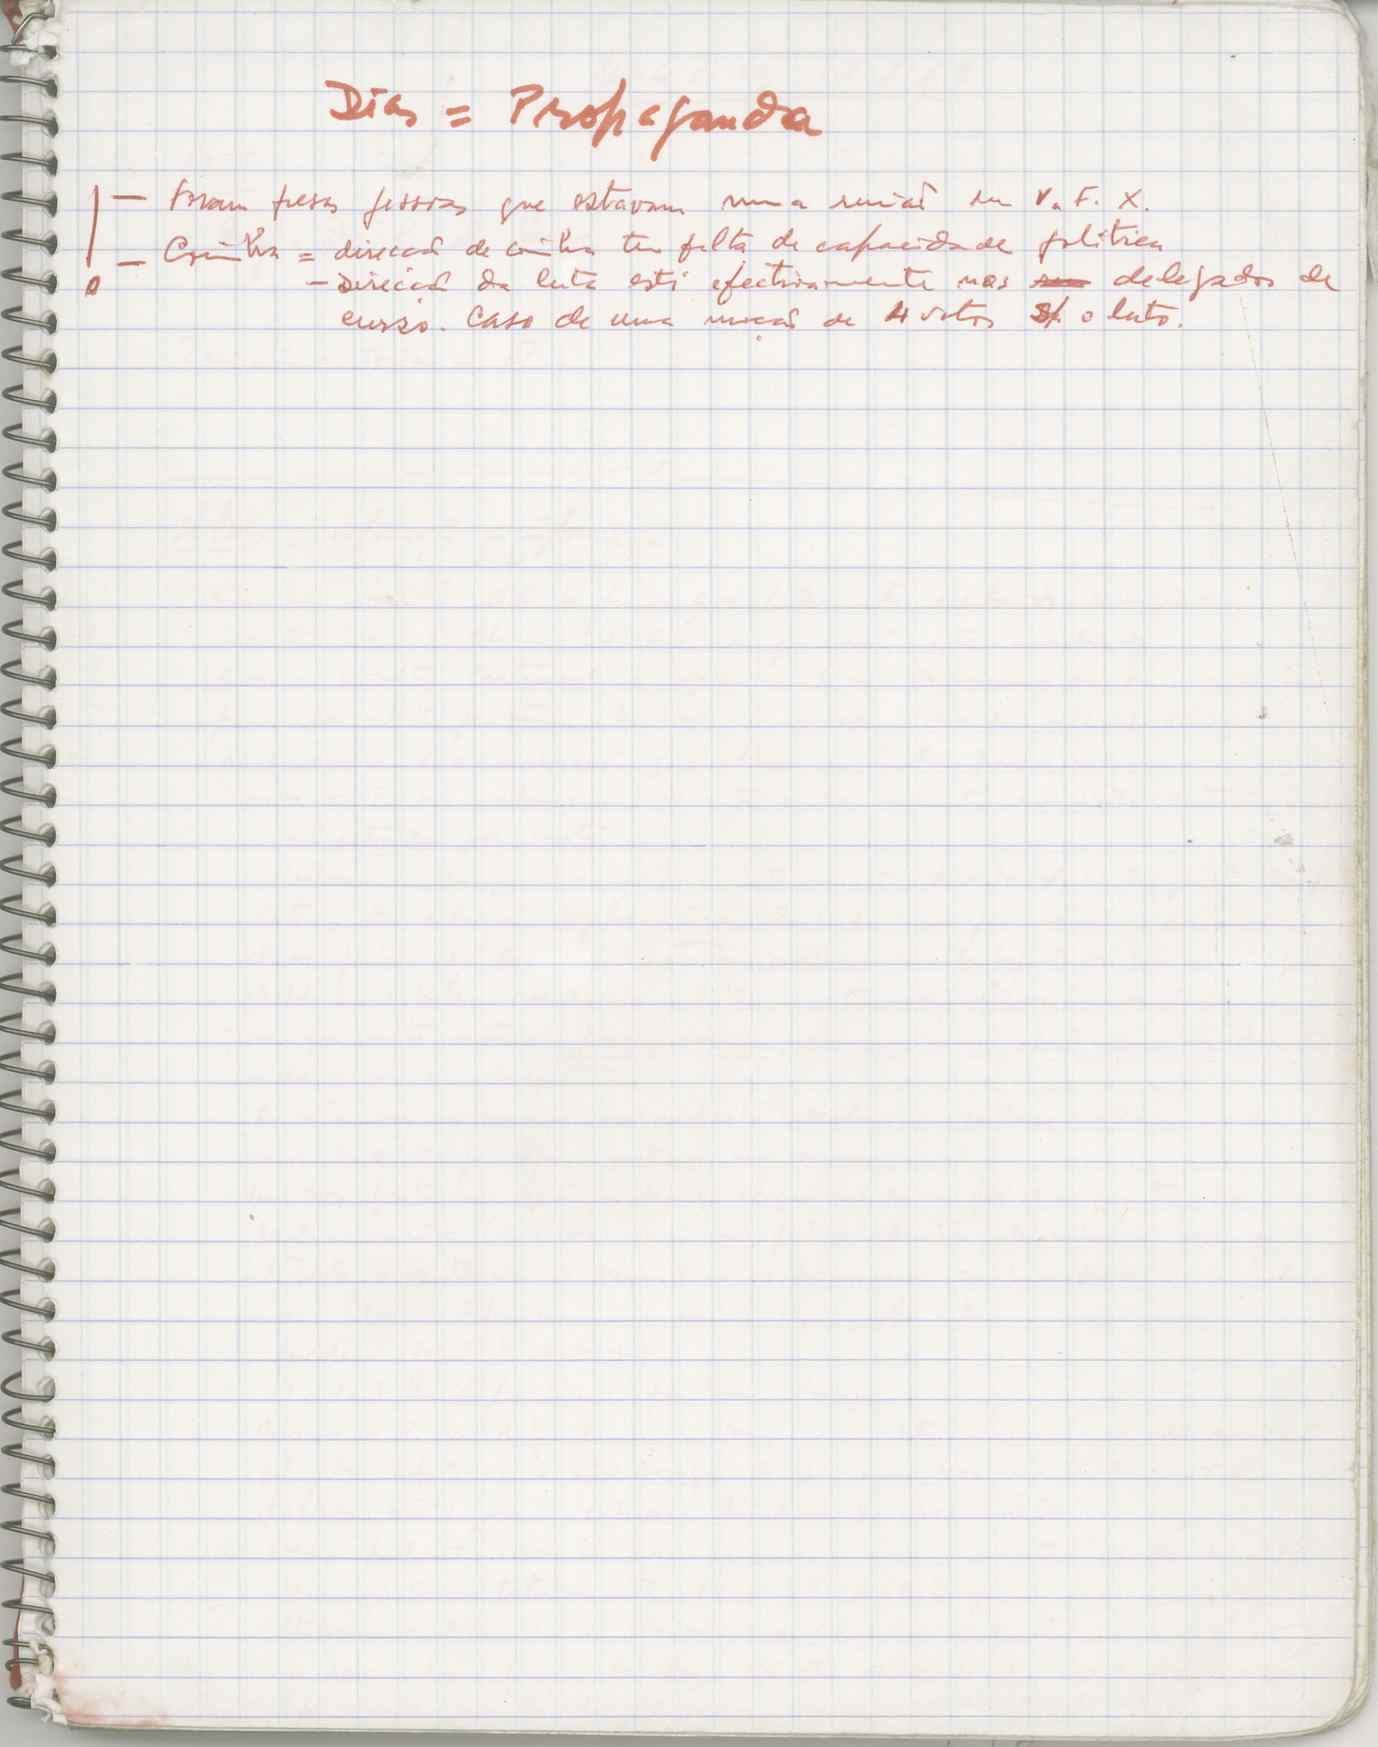 Dias = Propaganda
! — Foram presas pessoas que estavam numa reunião em V. F. X.
— Coimbra = direcção de Coimbra tem falta de capacidade política
— Direcção da luta está efectivamente nos delegados de
curso. Caso de uma moção de 4 votos s/. o luto.